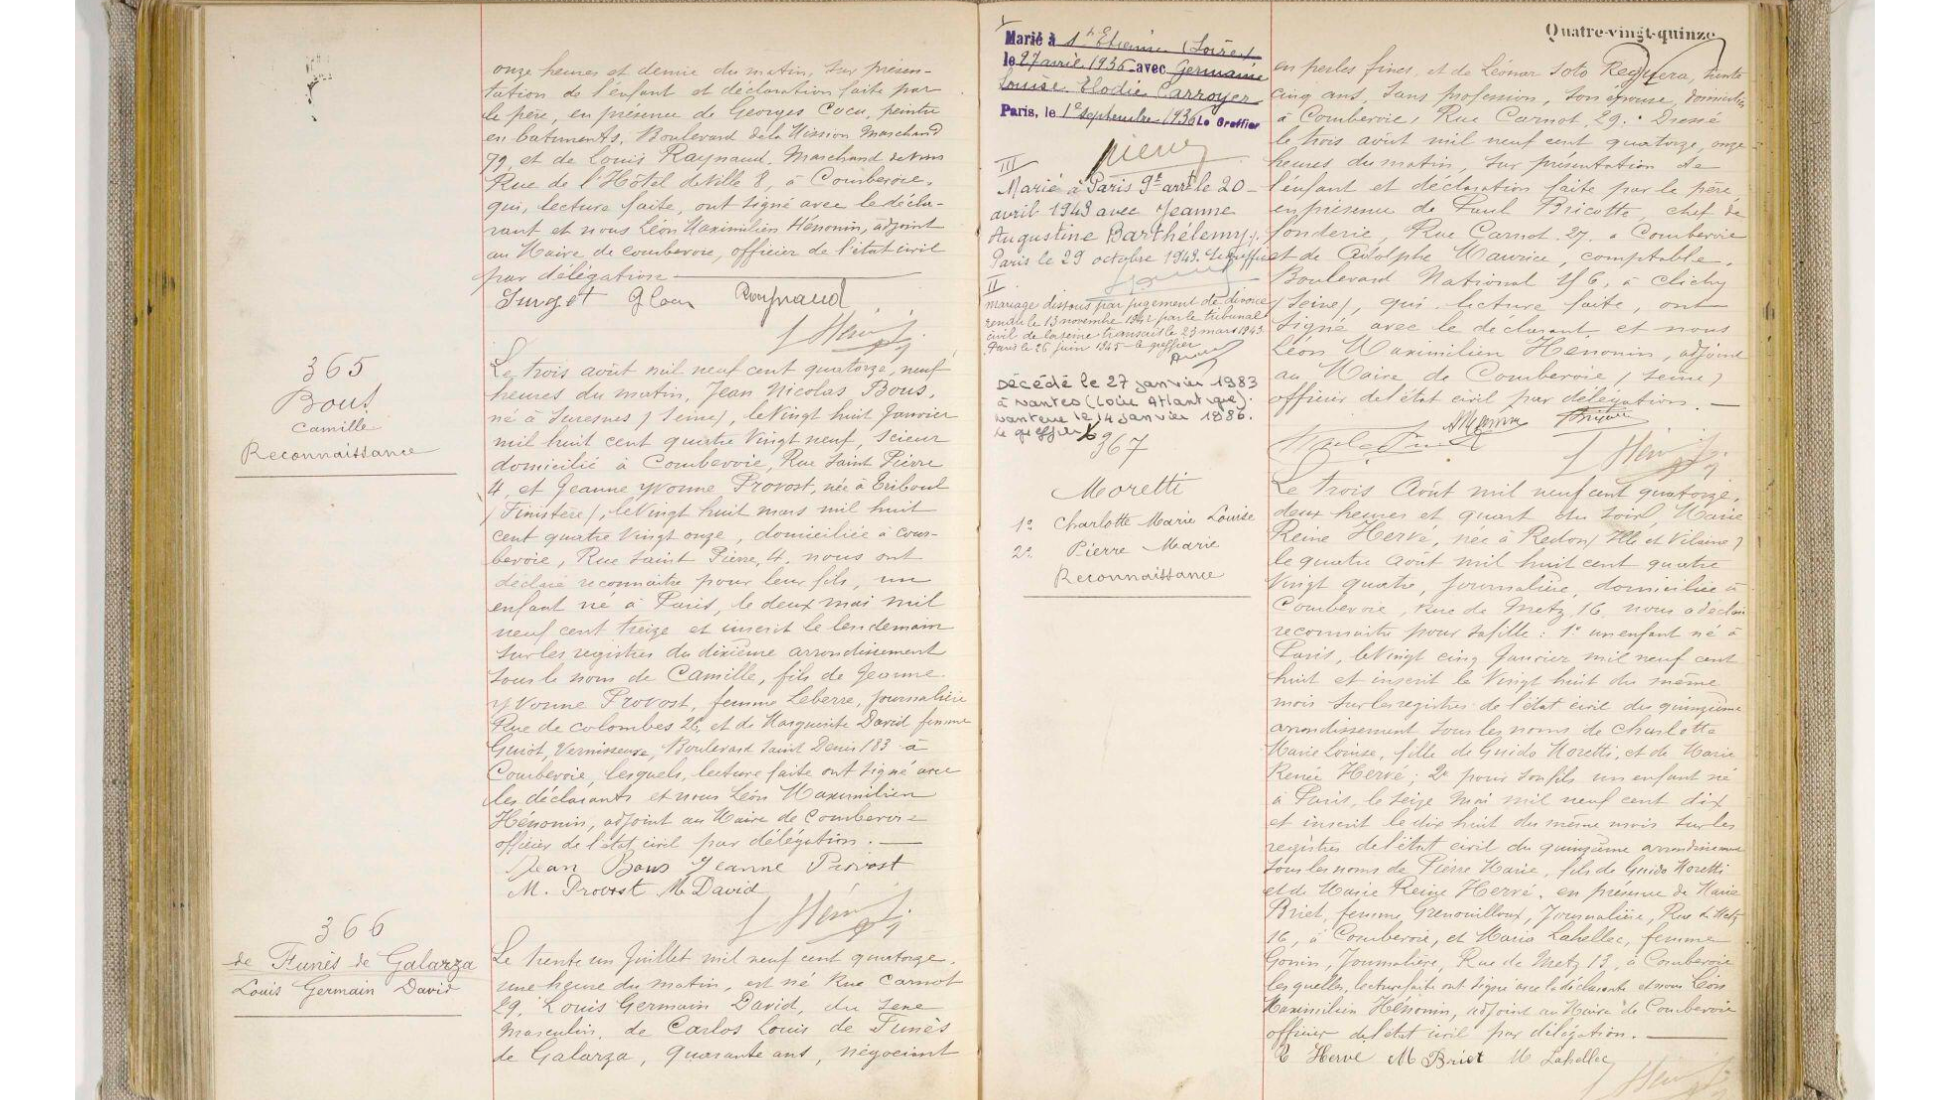 onze heures et demie du matin, sur présen-
tation de l'enfant et déclaration faite par
le père, en présence de Georges Cocu, peintre
en batiments, Boulevard de la Mission Marchand
79, et de Louis Raynaud, Marchand de vins
Rue de l'Hôtel de Ville 8, à Courbevoie,
qui, lecture faite, ont signé avec le décla-
rant et nous Léon Maximilien Hénonin, adjoint
au Maire de Courbevoie, officier de l'état civil
par délégation
Raynaud
365
Bous
Camille
Reconnaissance
Le trois août mil neuf cent quatorze, neuf
heures du matin, Jean Nicolas Bous,
né à Suresnes (Seine), le vingt huit Janvier
mil huit cent quatre vingt neuf, scieur
domicilié à Courbevoie, Rue Saint Pierre
4, et Jeanne Yvonne Provost, née à
(Finistère), le vingt huit mars mil huit
cent quatre vingt onze, domiciliée à Cour-
bevoie, Rue Saint Pierre, 4, nous ont
déclaré reconnaître pour leur fils, un
enfant né à Paris, le deux mai mil
neuf cent treize et inscrit le lendemain
sur les registres du dixième arrondissement
sous le nom de Camille, fils de Jeanne
Yvonne Provost, femme Leberre, Journalière
Rue de Colombes 26, et de Marguerite David femme
Guiot, Vernisseuse, Boulevard Saint Denis 183 à
Courbevoie, lesquels, lecture faite ont signé avec
les déclarants et nous Léon Maximilien
Hénonin, adjoint au Maire de Courbevoie
officier de l'état civil par délégation.
Jean Bous Jeanne Provost
M. Provost M David
366
de Funès de Galarza
Louis Germain David
Le trente un Juillet mil neuf cent quatorze,
une heure du matin, est né Rue Carnot
29, Louis Germain David, du sexe
masculin, de Carlos Louis de Funès
de Galarza, quarante ans, négociant
Quatre-vingt-quinze
Marié à St Etienne (Loire)
le 27 avril 1936 avec Germaine
Louise Elodie Carroyer
Paris, le 1er septembre 1936 Le Greffier
III
Marié à Paris 9e arrt le 20
avril 1943 avec Jeanne
Augustine Barthélemy.
Paris le 29 octobre 1943. Le greffier
II
Mariage dissous par jugement de divorce
rendu le 13 novembre 1942 par le tribunal
civil de la Seine transcrit le 23 mars 1943.
Paris le 26 juin 1945 - le greffier
Décédé le 27 janvier 1983
à Nantes (Loire Atlantique).
Nanterre le 14 janvier 1986.
le greffier
en perles fines, et de Léonor Soto Reguera, trente
cinq ans, sans profession, son épouse, domiciliés
à Courbevoie, Rue Carnot, 29. Dressé
le trois août mil neuf cent quatorze, onze
heures du matin, sur présentation de
l'enfant et déclaration faite par le père,
en présence de Paul Bricotte, chef de
fonderie, Rue Carnot, 27, à Courbevoie
et de Adolphe Maurice, comptable,
Boulevard National 46, à Clichy
(Seine), qui lecture faite, ont
signé avec le déclarant et nous
Léon Maximilien Hénonin, adjoint
au Maire de Courbevoie (Seine)
officier de l'état civil par délégation.
367
Moretti
1° Charlotte Marie Louise
2° Pierre Marie
Reconnaissance
Le trois Août mil neuf cent quatorze,
deux heures et quart du soir, Marie
Reine Hervé, née à Redon (Ille et Vilaine)
le quatre Août mil huit cent quatre
vingt quatre, Journalière, domiciliée à
Courbevoie, Rue de Metz, 16, nous a déclaré
reconnaître pour sa fille : 1° un enfant né à
Paris, le vingt cinq Janvier mil neuf cent
huit et inscrit le vingt huit du même
mois sur les registres de l'état civil du quinzième
arrondissement sous les noms de Charlotte
Marie Louise, fille de Guido Moretti, et de Marie
Reine Hervé ; 2° pour son fils un enfant né
à Paris, le seize Mai mil neuf cent dix
et inscrit le dix huit du même mois sur les
registres de l'état civil du quinzième arrondissement
sous les noms de Pierre Marie, fils de Guido Moretti
et de Marie Reine Hervé, en présence de Marie
Briet, femme Grenouilloux, Journalière, Rue de Metz
16, à Courbevoie, et Maria Lahellec, femme
Gonin, Journalière, Rue de Metz 13, à Courbevoie
lesquelles, lecture faite ont signé avec la déclarante et nous Léon
Maximilien Hénonin, adjoint au Maire de Courbevoie
officier de l'état civil par délégation.
Hervé M Briet M Lahellec